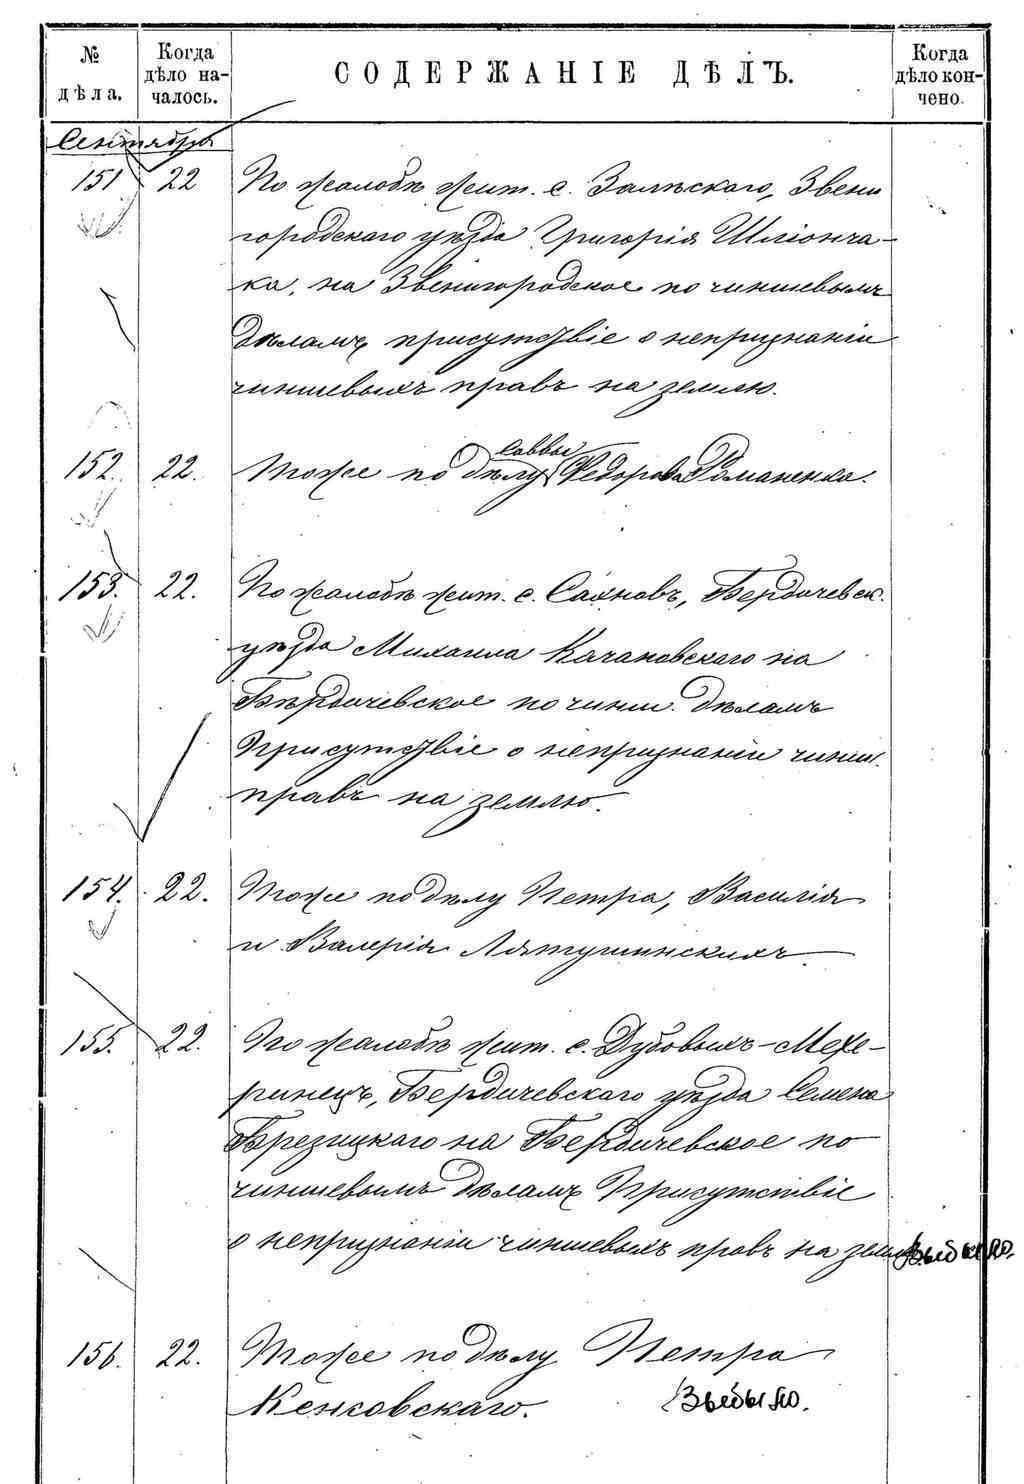 № дѣла.
Когда дѣло началось.
СОДЕРЖАНІЕ ДѢЛЪ.
Когда дѣло кончено.
Сентября
151 22 По жалобѣ жит. с. Залѣскаго, Звени
городскаго уѣзда Григорія Шліонча-
ка, на Звенигородское по чиншевымъ
дѣламъ присутствіе о непризнаніи
чиншевыхъ правъ на землю.
Саввы
152. 22. Тоже по дѣлу Федорова Романенка.
153. 22. По жалобѣ жит. с. Бердичевск.
уѣзда Михаила Качановскаго на
Бѣрдичевское по чинш. дѣламъ
Присутствіе о непризнаніи чинш.
правъ на землю.
154. 22. Тоже по дѣлу Петра, Василія
и Валерія Лятушинскихъ.
155. 22. По жалобѣ жит. с. Дубовыхъ-Меже-
ринецъ, Бердичевскаго уѣзда Семена
Брезицкаго на Бердичевское по
чиншевымъ дѣламъ Присутствіе
о непризнаніи чиншевыхъ правъ на землю.
Выбыло.
156. 22. Тоже по дѣлу Петра
Кенковскаго. Выбыло.